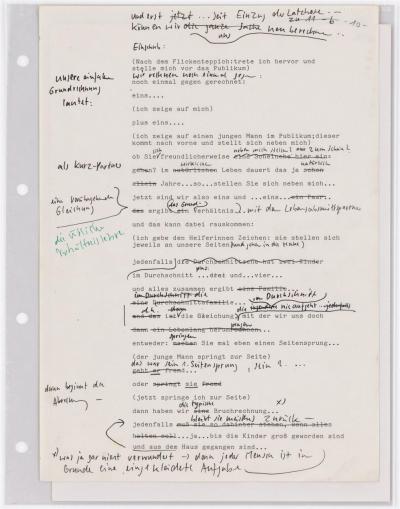 und erst jetzt ... seit Einzug der Latzhose --
zu 11 - 6 - 10 -
können wir die ganze Sache neu berechnen ..
Einschub:
(Nach dem Flickenteppich:trete ich hervor und
stelle mich vor das Publikum)
wir rechnen noch einmal gegen:
noch einmal gegen gerechnet:
unsere einfache
Grundrechnung
lautet:
eins....
(ich zeige auf mich)
plus eins....
(ich zeige auf einen jungen Mann im Publikum;dieser
kommt nach vorne und stellt sich neben mich)
als Kurz-Partner
ob Sie freundlicherweise eine Scheinehe hier ein-
gehen? im natürlichen Leben dauert das ja schon
allein Jahre...so...stellen Sie sich neben mich...
eine vorübergehende
Gleichung
jetzt sind wir also eins und ...eins...ein Paar.
das ergibt ein Verhältnis
und das kann dabei rauskommen:
die übliche
Verhältnislehre
(ich gebe den Helferinnen Zeichen: sie stellen sich
jeweils an unsere Seiten
jedenfalls die Durchschnittsehe hat zwei Kinder
plus:
im Durchschnitt ...drei und...vier...
und alles zusammen ergibt eine Familie
im Durchschnitt die
Durchschnittsfamilie...
im Durchschnitt
die nie aufgeht.. jedenfalls
und das ist die Gleichung mit der wir uns doch
dann ein Lebenlang
springen
entweder: machen Sie mal eben einen Seitensprung...
(der junge Mann springt zur Seite)
das war sein 1. Seitensprung, sein 2. ...
geht er fremd...
oder springt sie fremd
dann beginnt die
Abrechnung -
(jetzt springe ich zur Seite)
die typische
dann haben wir eine Bruchrechnung...
x)
bleibt sie meistens zurück -
jedenfalls muß sie so dahinter stehen, wenn alles
halten soll...ja...bis die Kinder groß geworden sind
und aus dem Haus gegangen sind...
x) was ja gar nicht verwundert -> denn jeder Mensch ist im
Grunde eine eingekleidete Aufgabe